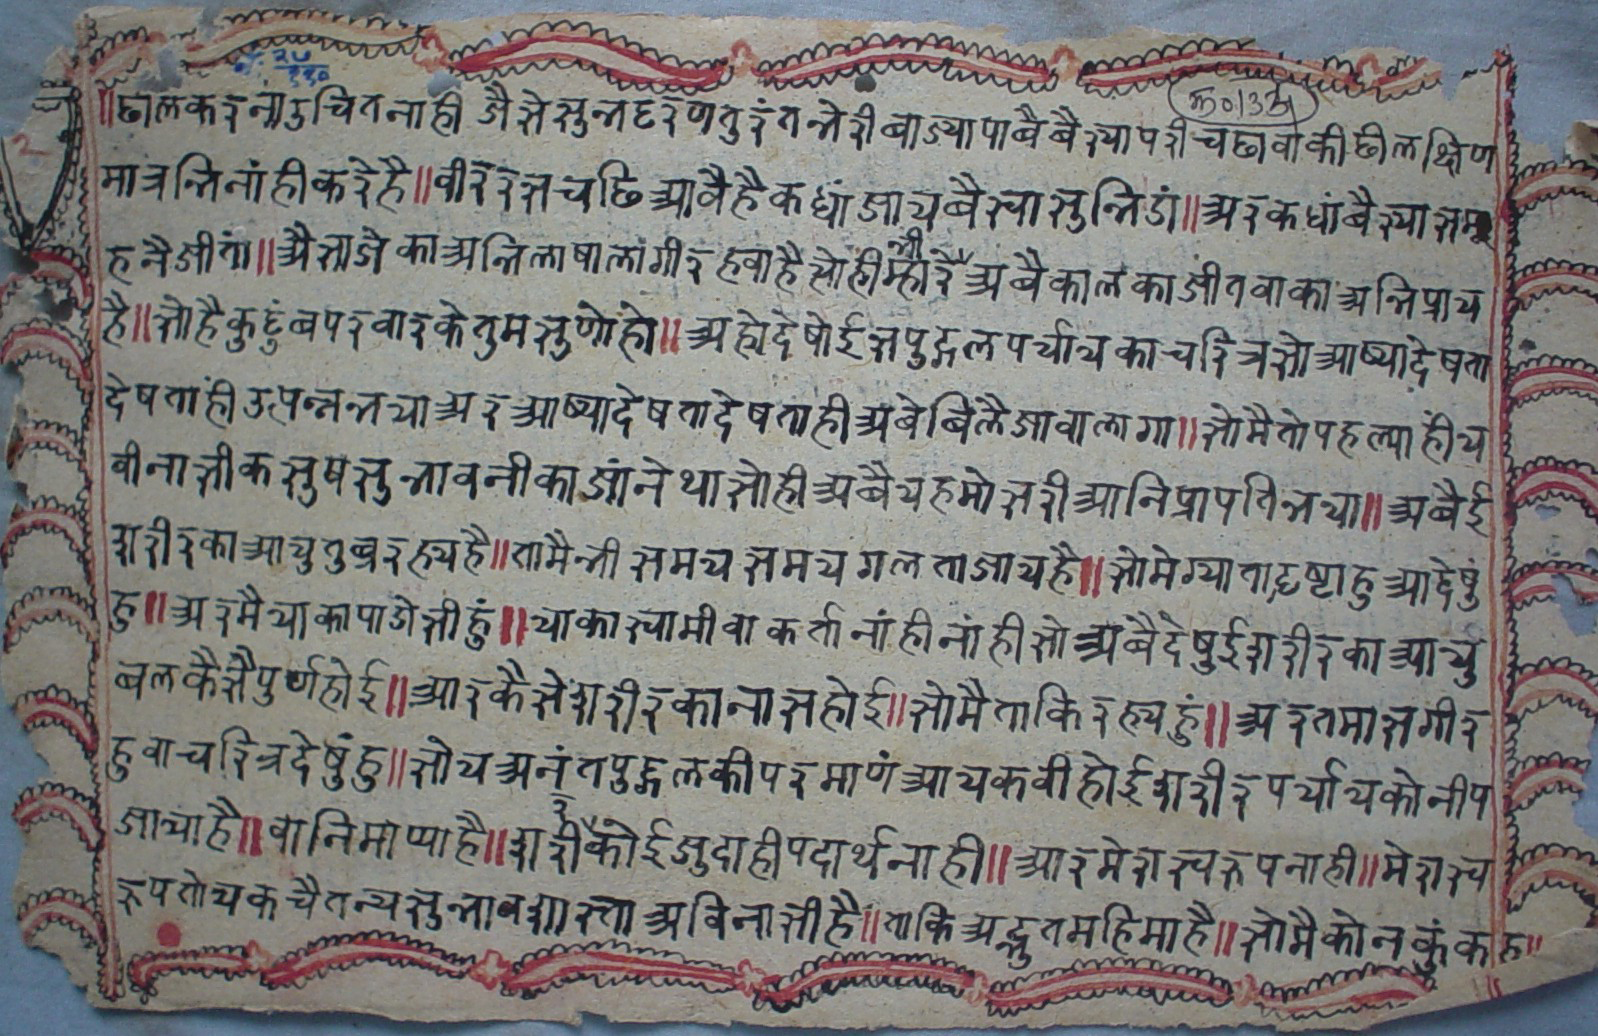 २५
११०
क०।३३।
2
॥ढालकरनाउचितनाही जैसेसुभटरणतुरंतभेरीबाज्यापाबैबैस्यापरीचछावाकीढीलक्षिण
मात्रभिनांहीकरेहै॥वीररसचढिआवैहैकधांजायबैस्यासुभिडां॥अरकधांबैस्यासमू
हनैजीतां॥अैसाजेकाअभिलाषालागीरहवाहैसोहीम्हारैभीअबैकालकाजीतवाकाअभिप्राय
है॥सोहैकुटुंबपरवारकेतुमसुणोहो॥अहोदेषोईसपुद्गलपर्यायकाचरित्रसोआष्यादेषता
देषतांहीउत्पन्नभयाअरआष्यादेषतादेषताहीअबेबिलैजावालागा॥सोमैतोपहल्यांहीय
वीनासीकसुषसुभावनीकाजांनेथासोहीअबैयहमोसरीआनिप्रापतिभया॥अबैई
शरीरकाआयुतुबरह्यहै॥तामैभीसमयसमयगलताजायहै॥सोमेग्याताद्रष्टाहुआदेषुं
हु॥अरमैयाकापाडोसीहुं॥याकास्वामीवाकर्तानांहीनांहीसोअबैदेषुईशरीरकाआयु
बलकैसैपुर्णहोई॥आरकैसेशरीरकानासहोई॥सोमैताकिरह्यहुं॥अरतमासगीर
हुवाचरित्रदेषुंहु॥सोयअनंतपुद्गलकीपरमाणंआयकवीहोईशरीरपर्यायकोनीप
जायाहै॥वानिमाप्याहै॥शरीरकोईजुदाहीपदार्थनाही॥आरमेरास्वरुपनाही॥मेरास्व
रुपतोयकचैतन्यसुभावशास्ताअविनासीहै॥ताकिअद्भुतमहिमाहै॥सोमैकोनकुंकहु॥